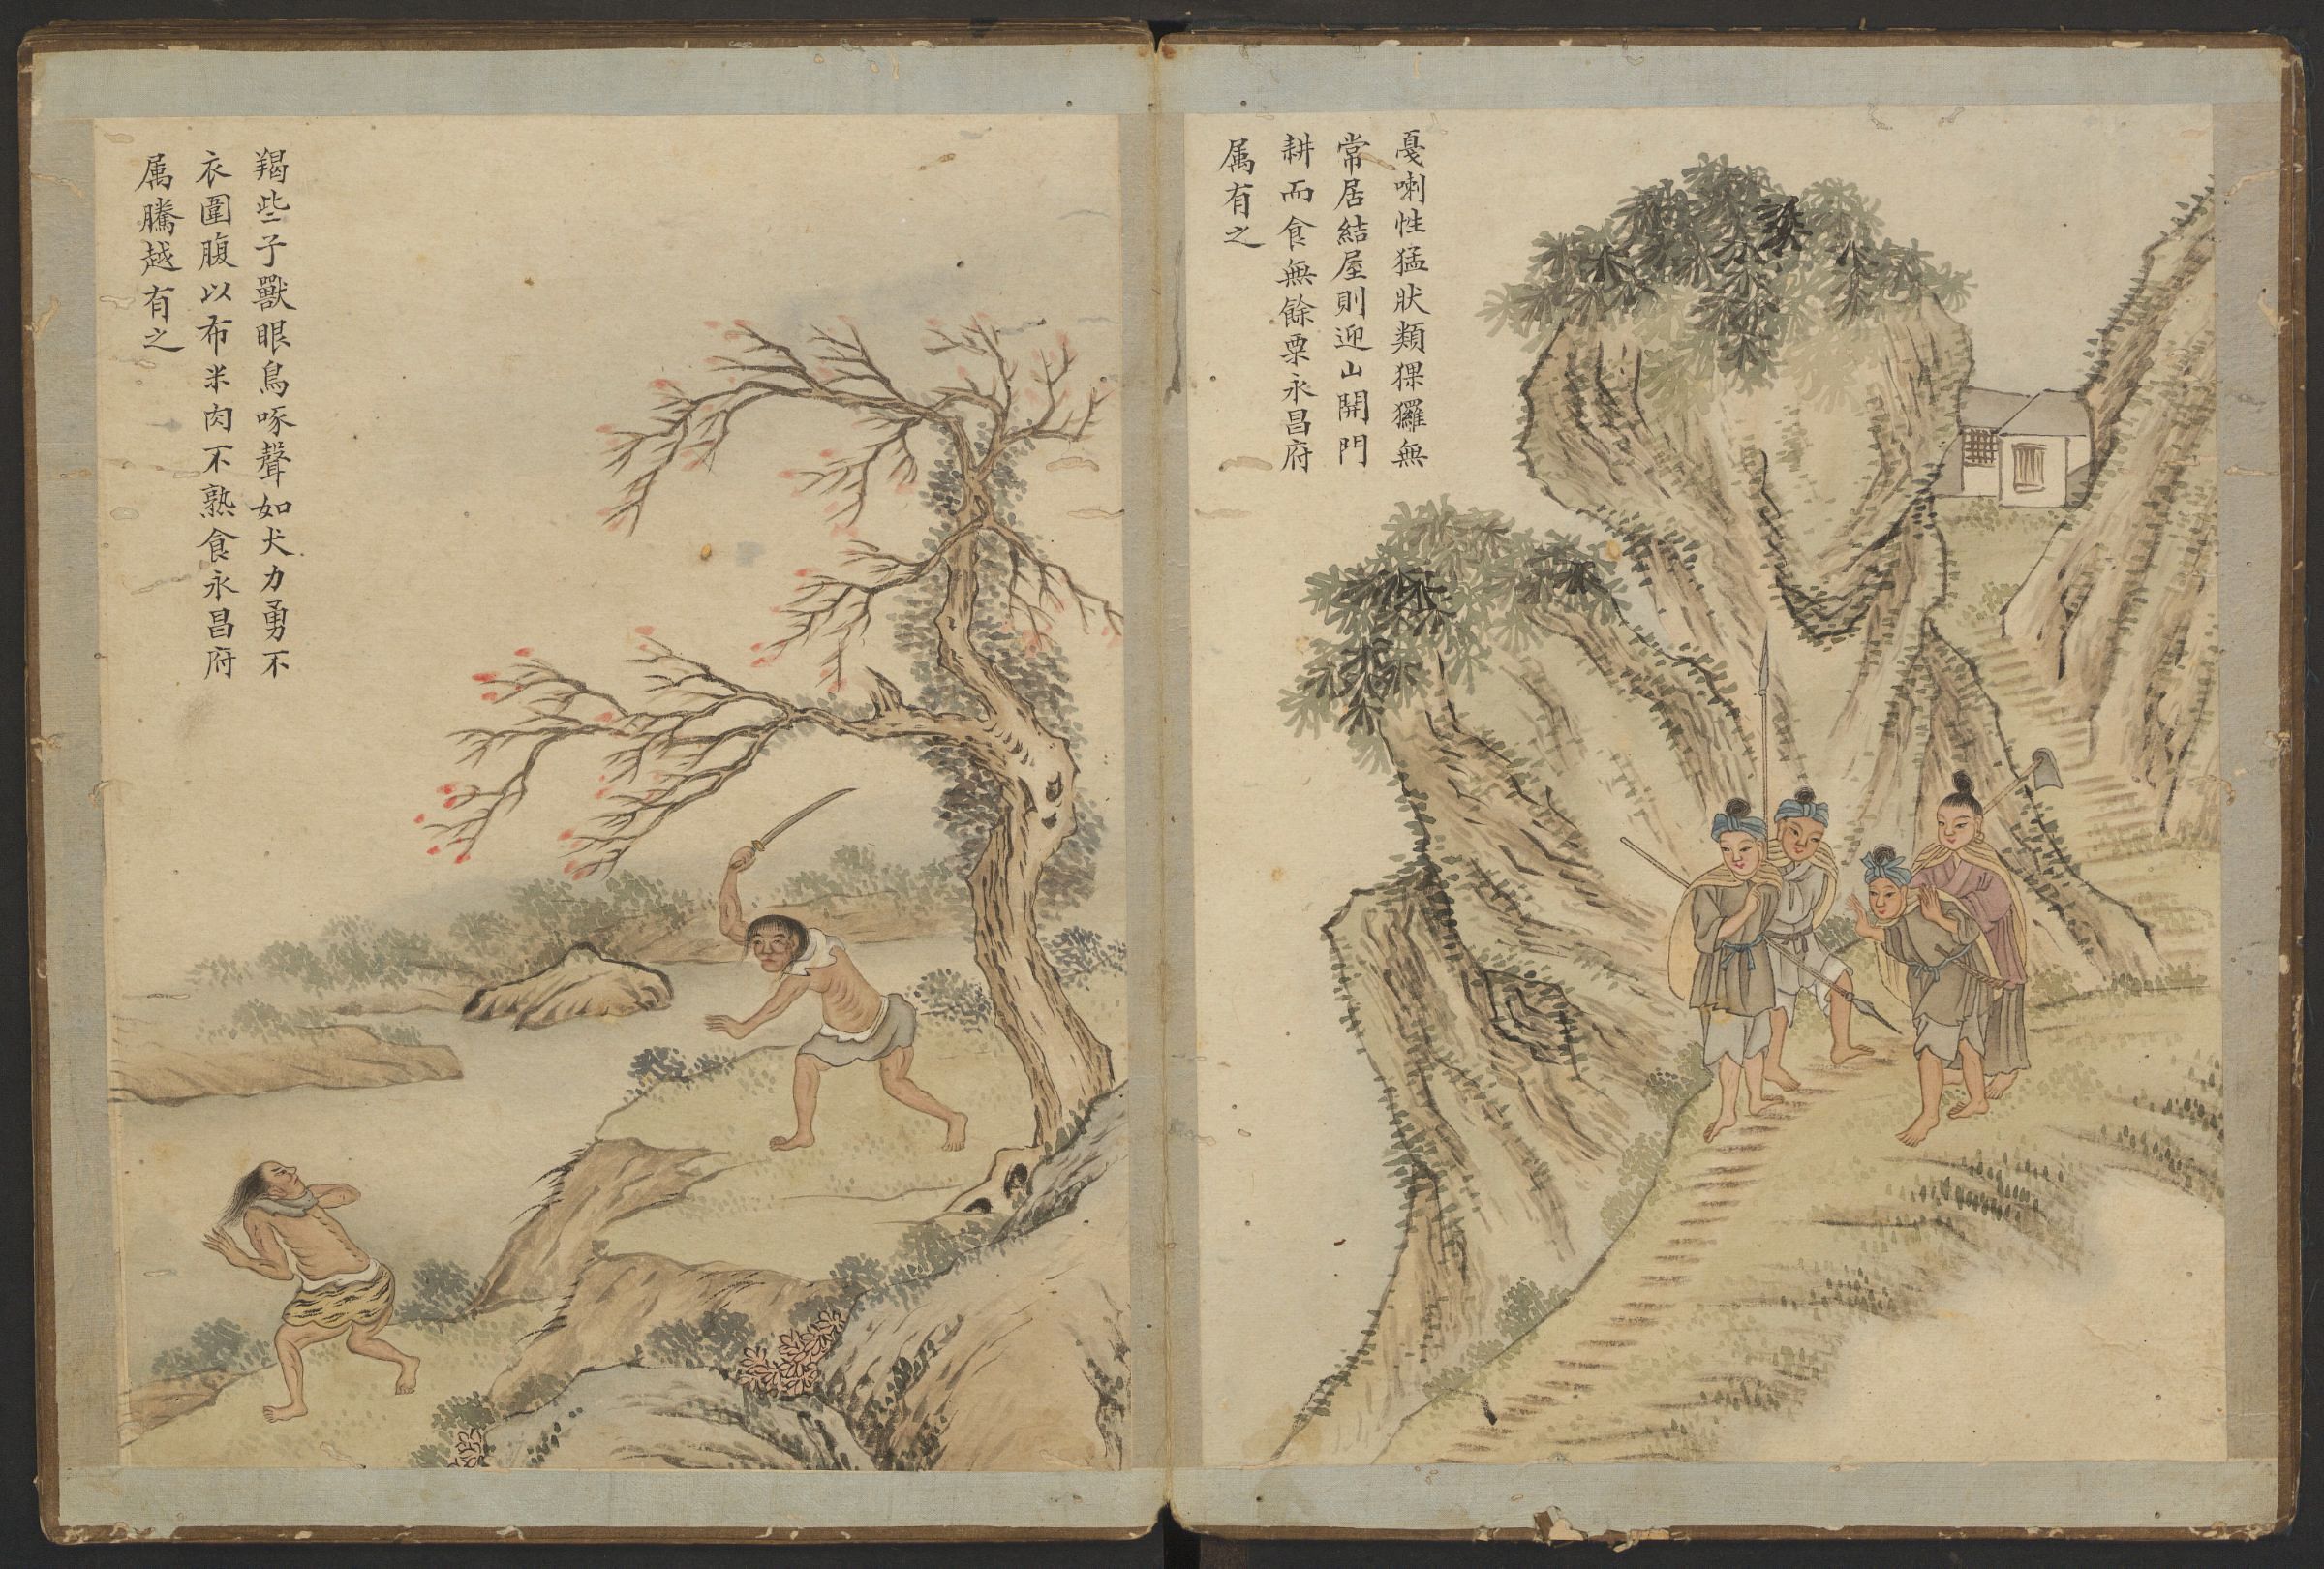 戞喇性猛狀類猓玀無
常居結屋則迎山開門
耕而食無餘粟永昌府
属有之
羯些子獸眼鳥啄聲如犬力勇不
衣圍腹以布米肉不熟食永昌府
属騰越有之